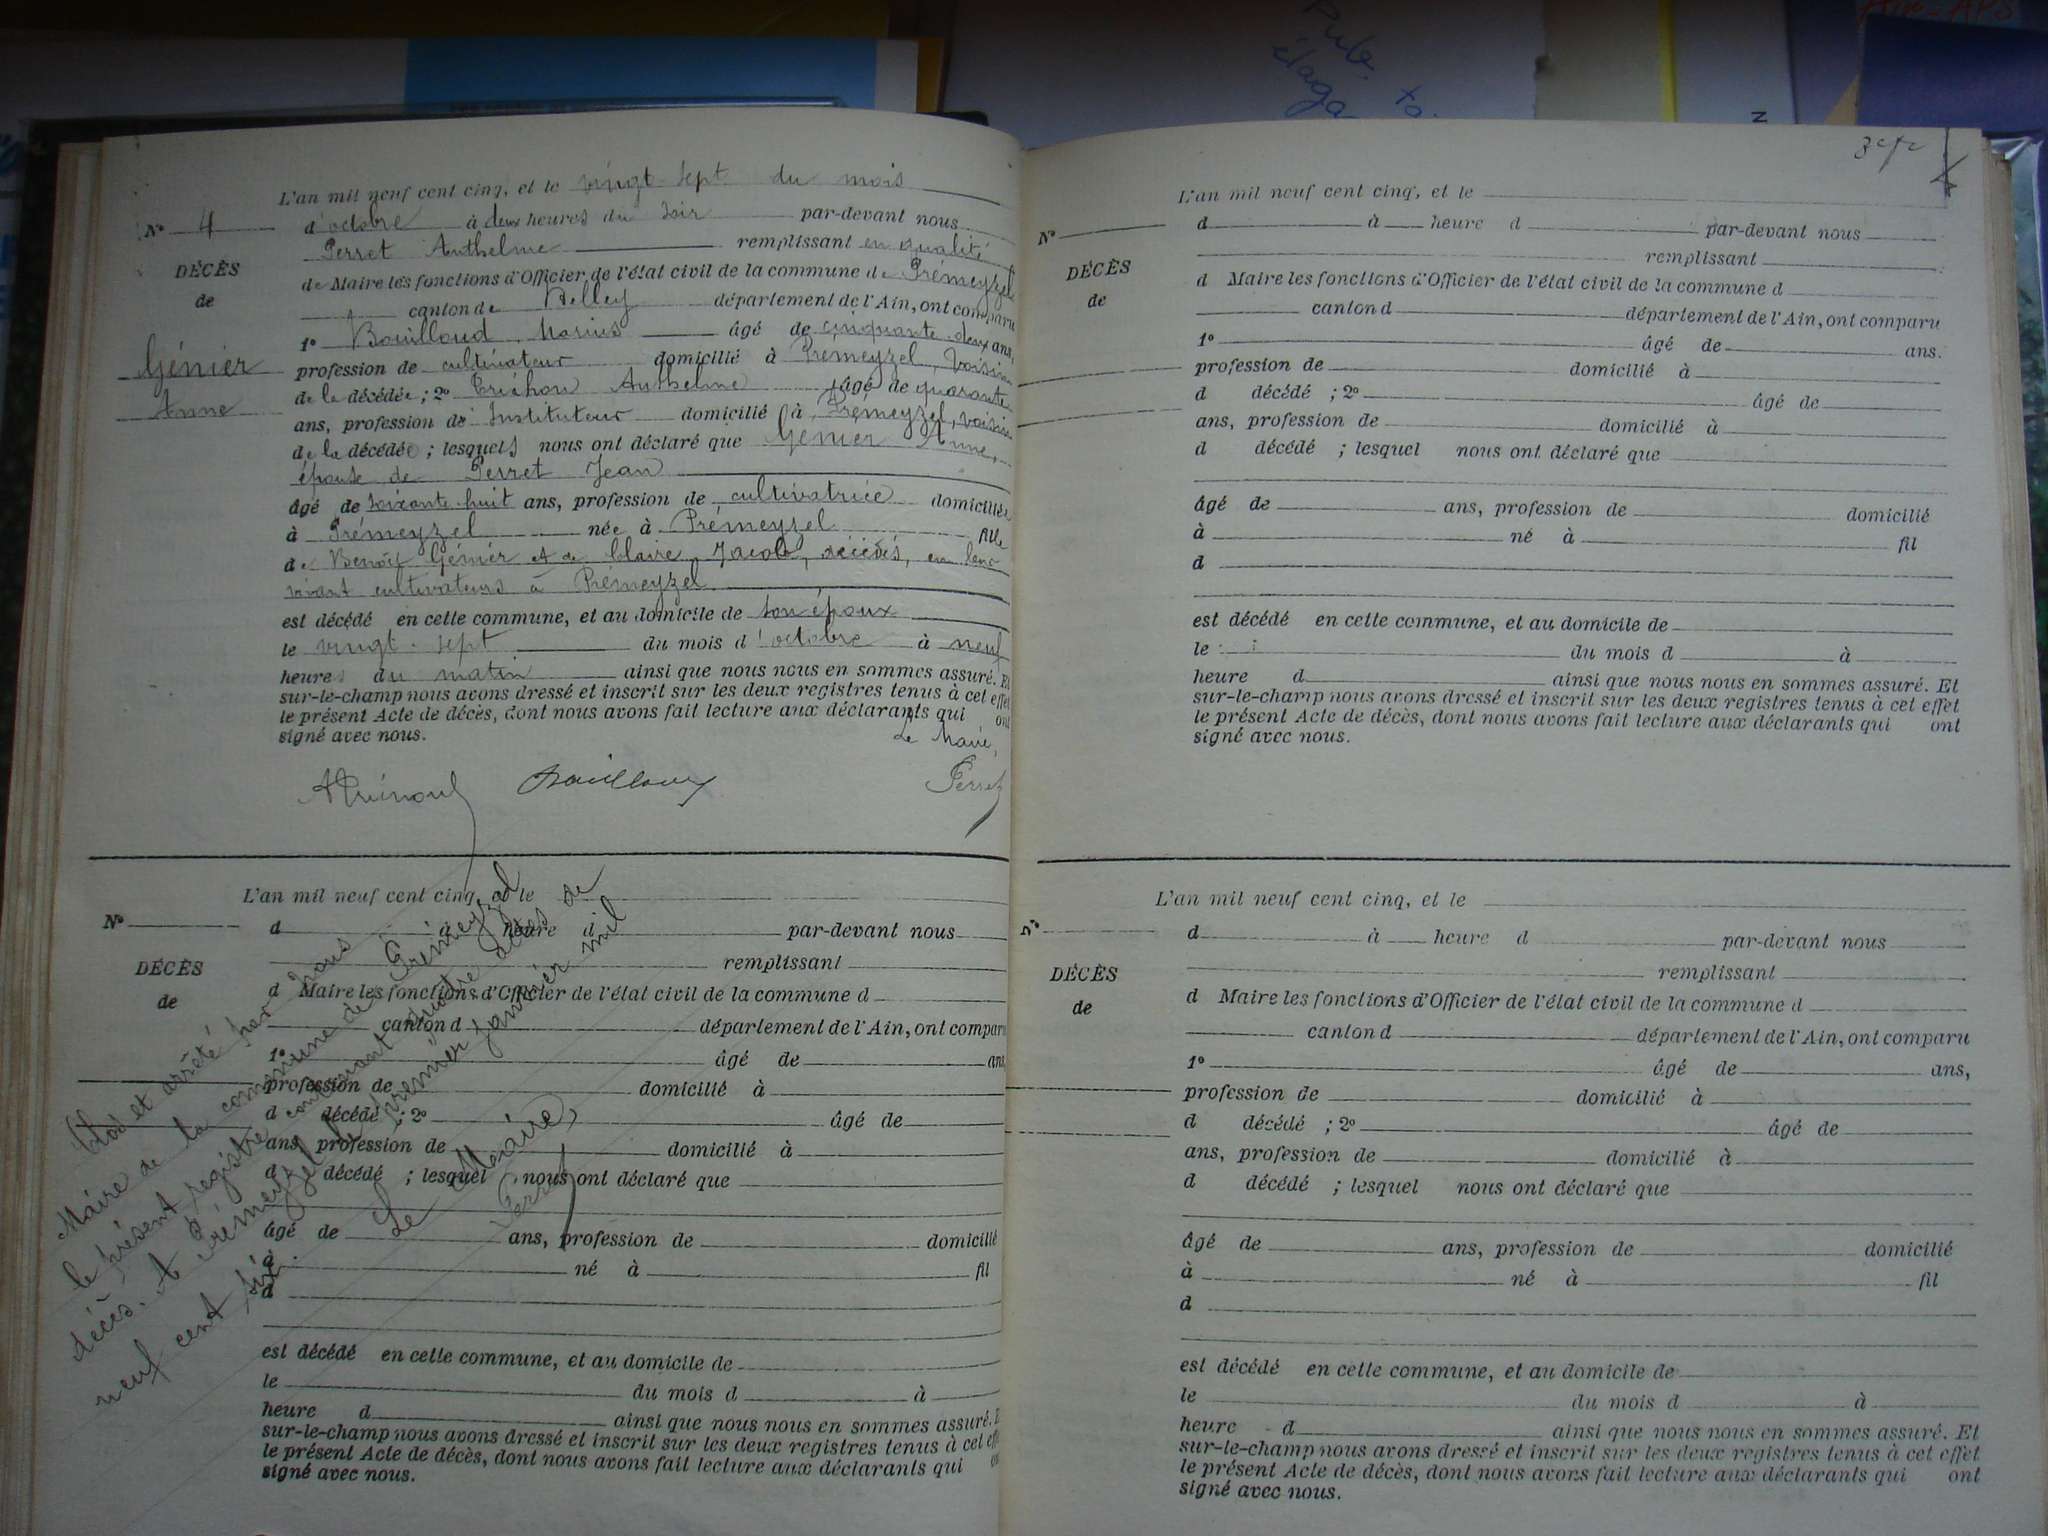 Pub.
élaga
L'an mil neuf cent cinq, et le vingt sept du mois
N° 4
d'octobre à deux heures du soir par-devant nous
Perret Anthelme remplissant en qualité
DÉCÈS
de Maire les fonctions d'Officier de l'état civil de la commune de Prémeyzel
de
canton de Belley département de l'Ain, ont comparu
1° Bouilloud Marius âgé de cinquante-deux ans,
Génier
profession de cultivateur domicilié à Prémeyzel, voisin
Anne
de la décédée ; 2° Anthelme âgé de quarante
ans, profession de Instituteur domicilié à Prémeyzel, voisin
de la décédée ; lesquels nous ont déclaré que Génier Anne,
épouse de Perret Jean
âgé de soixante huit ans, profession de cultivatrice domiciliée
à Prémeyzel née à Prémeyzel fille
de Benoît Génier et de Claire Jacob, décédés, en leur
vivant cultivateurs à Prémeyzel
est décédé en cette commune, et au domicile de son époux
le vingt-sept du mois d'octobre à neuf
heures du matin ainsi que nous nous en sommes assuré. Et
sur-le-champ nous avons dressé et inscrit sur les deux registres tenus à cet effet
le présent Acte de décès, dont nous avons fait lecture aux déclarants qui ont
signé avec nous.
Le Maire,
Bouilloud
Perret
L'an mil neuf cent cinq, et le
N°
d à heure d par-devant nous
remplissant
DÉCÈS
d Maire les fonctions d'Officier de l'état civil de la commune d
de
canton d département de l'Ain, ont comparu
1° âgé de ans
profession de domicilié à
d décédé ; 2° âgé de
ans, profession de domicilié à
d décédé ; lesquel nous ont déclaré que
âgé de ans, profession de domicilié
à né à fil
d
est décédé en cette commune, et au domicile de
le du mois d à
heure d ainsi que nous nous en sommes assuré. E
sur-le-champ nous avons dressé et inscrit sur les deux registres tenus à cet eff
le présent Acte de décès, dont nous avons fait lecture aux déclarants qui on
signé avec nous.
Clos et arrêté par nous
Maire de la commune de Prémeyzel
le présent registre contenant quatre actes de
décès. A Prémeyzel le premier janvier mil
neuf cent six.
Le Maire,
Perret
L'an mil neuf cent cinq, et le
N°
d à heure d par-devant nous
remplissant
DÉCÈS
d Maire les fonctions d'Officier de l'état civil de la commune d
de
canton d département de l'Ain, ont comparu
1° âgé de ans.
profession de domicilié à
d décédé ; 2° âgé de
ans, profession de domicilié à
d décédé ; lesquel nous ont déclaré que
âgé de ans, profession de domicilié
à né à fil
d
est décédé en cette commune, et au domicile de
le du mois d à
heure d ainsi que nous nous en sommes assuré. Et
sur-le-champ nous avons dressé et inscrit sur les deux registres tenus à cet effet
le présent Acte de décès, dont nous avons fait lecture aux déclarants qui ont
signé avec nous.
L'an mil neuf cent cinq, et le
N°
d à heure d par-devant nous
remplissant
DÉCÈS
d Maire les fonctions d'Officier de l'état civil de la commune d
de
canton d département de l'Ain, ont comparu
1° âgé de ans,
profession de domicilié à
d décédé ; 2° âgé de
ans, profession de domicilié à
d décédé ; lesquel nous ont déclaré que
âgé de ans, profession de domicilié
à né à fil
d
est décédé en cette commune, et au domicile de
le du mois d à
heure d ainsi que nous nous en sommes assuré. Et
sur-le-champ nous avons dressé et inscrit sur les deux registres tenus à cet effet
le présent Acte de décès, dont nous avons fait lecture aux déclarants qui ont
signé avec nous.